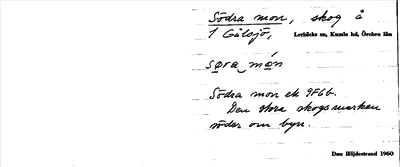 Södra mon, skog å
1 Gålsjö, Lerbäcks sn, Kumla hd, Örebro län
søra món
Södra mon ek 9F6b.
Den stora skogsmarken
söder om byn.
Dan Höjdestrand 1960